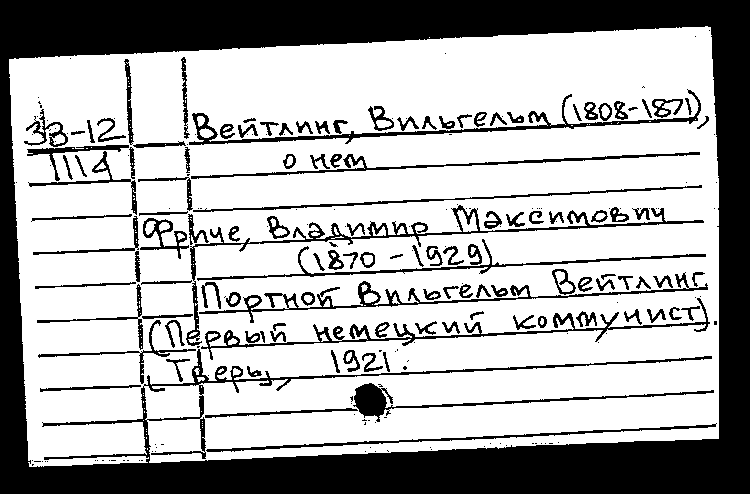 33-12 Вейтлинг, Вильгельм (1808-1871),
1114 о нем
Фриче, Владимир Максимович
(1870 - 1929).
Портной Вильгельм Вейтлинг
(Первый немецкий коммунист).
[Тверь], 1921.